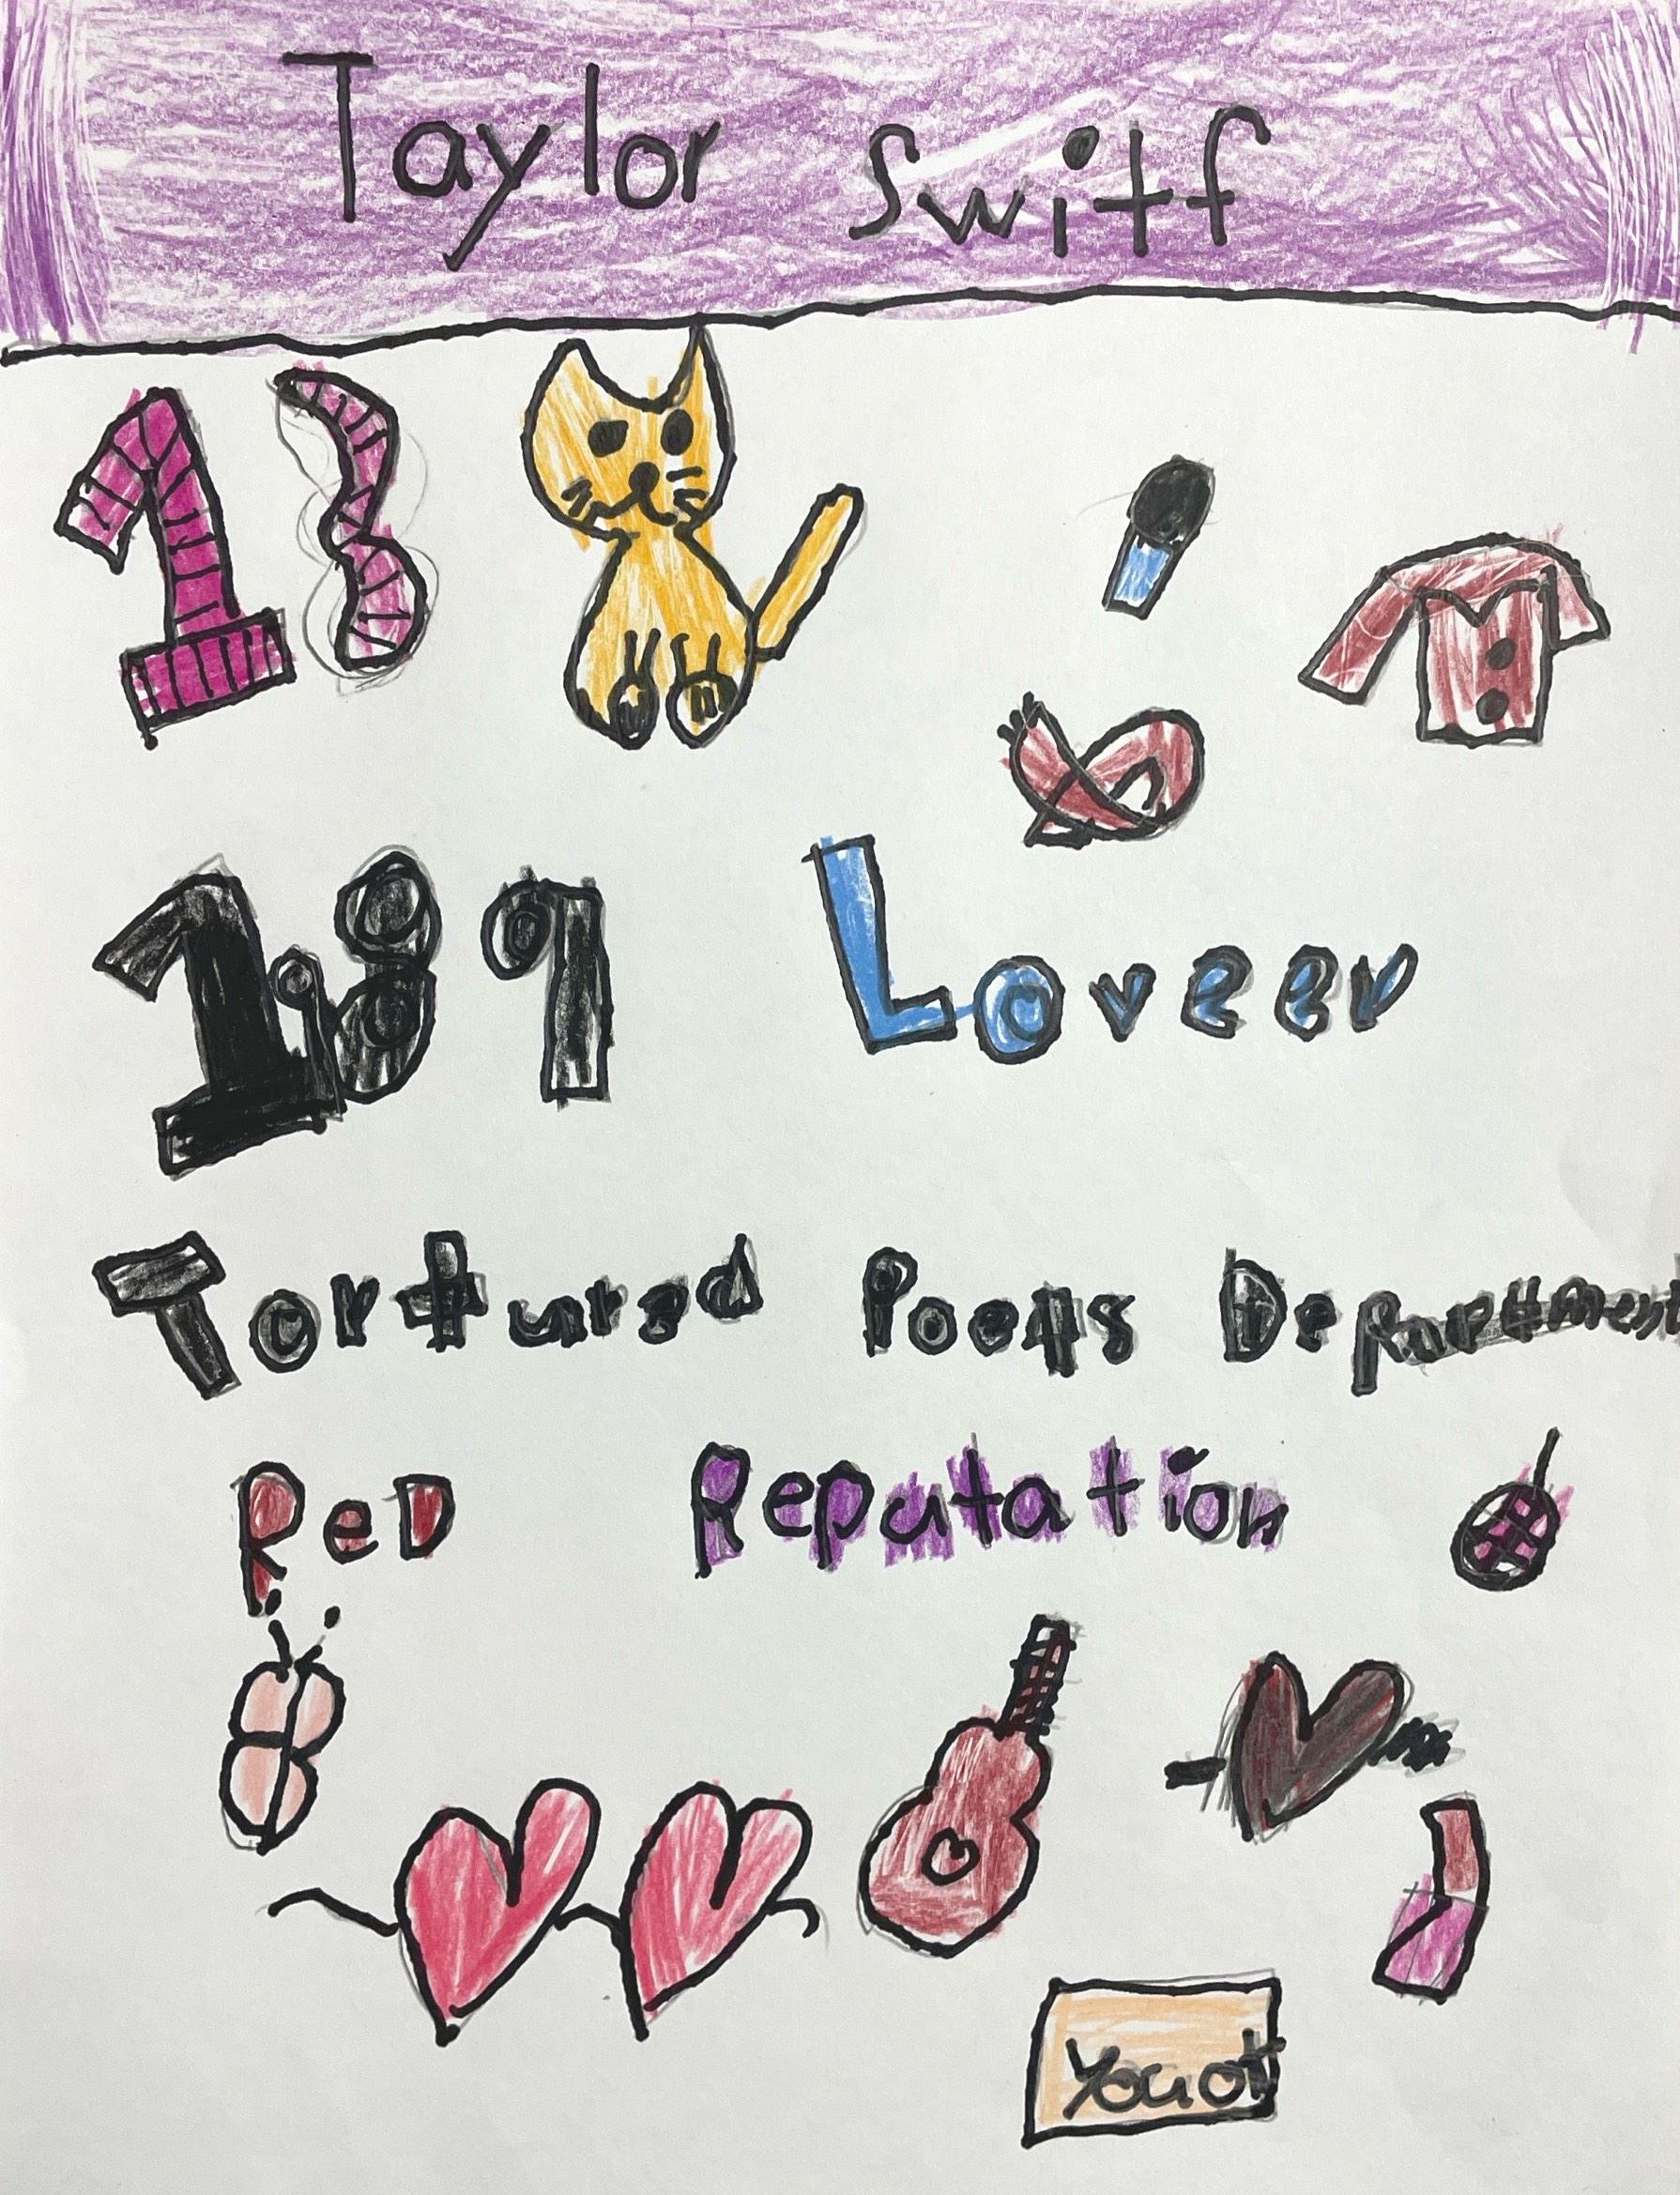 Taylor Switf
13
1989 Loveer
Tortured Poets Department
ReD Reputation